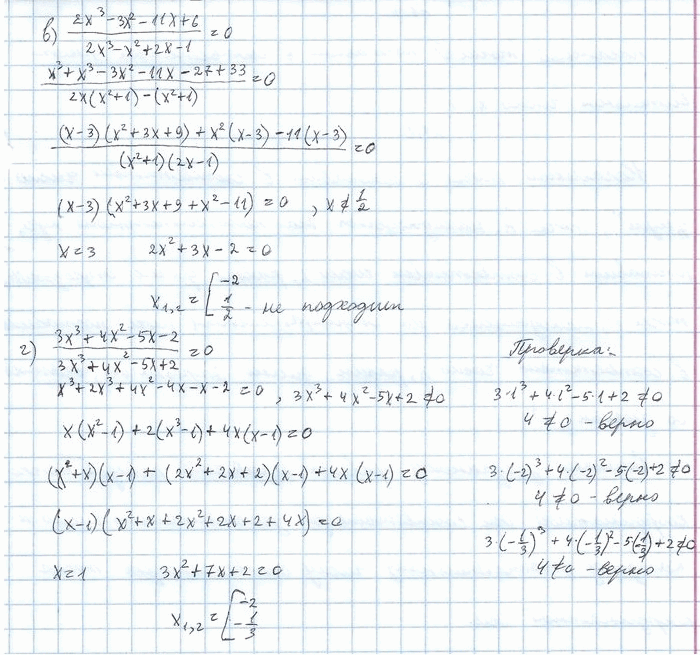 в) (2x³ - 3x² - 11x + 6)/(2x³ - x² + 2x - 1) = 0
(x³ + x³ - 3x² - 11x - 27 + 33)/(2x(x² + 1) - (x² + 1)) = 0
((x-3)(x² + 3x + 9) + x²(x-3) - 11(x-3))/((x² + 1)(2x - 1)) = 0
(x-3)(x² + 3x + 9 + x² - 11) = 0 , x ≠ 1/2
x = 3 2x² + 3x - 2 = 0
x₁,₂ = [ -2
1/2 - не подходит
г) (3x³ + 4x² - 5x - 2)/(3x³ + 4x² - 5x + 2) = 0
x³ + 2x³ + 4x² - 4x - x - 2 = 0 , 3x³ + 4x² - 5x + 2 ≠ 0
x(x² - 1) + 2(x³ - 1) + 4x(x - 1) = 0
(x² + x)(x - 1) + (2x² + 2x + 2)(x - 1) + 4x(x - 1) = 0
(x - 1)(x² + x + 2x² + 2x + 2 + 4x) = 0
x = 1 3x² + 7x + 2 = 0
x₁,₂ = [ -2
-1/3
Проверка:
3·1³ + 4·1² - 5·1 + 2 ≠ 0
4 ≠ 0 - верно
3·(-2)³ + 4·(-2)² - 5(-2) + 2 ≠ 0
4 ≠ 0 - верно
3·(-1/3)³ + 4·(-1/3)² - 5(-1/3) + 2 ≠ 0
4 ≠ 0 - верно